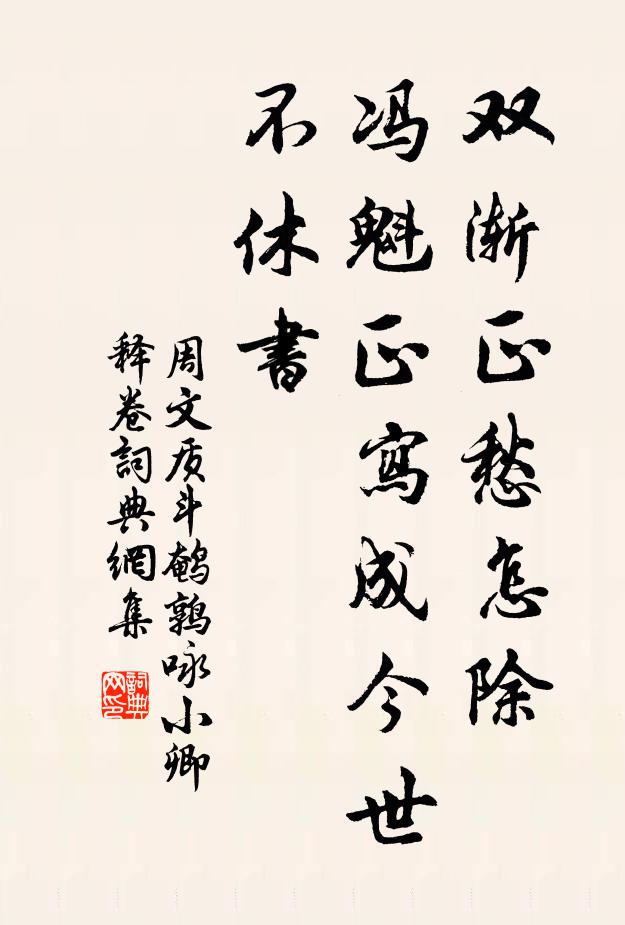 双渐正愁怎除
冯魁正寫成今世
不休書
周文质斗鹌鹑咏小卿
释卷詞典網集
詞典
网印